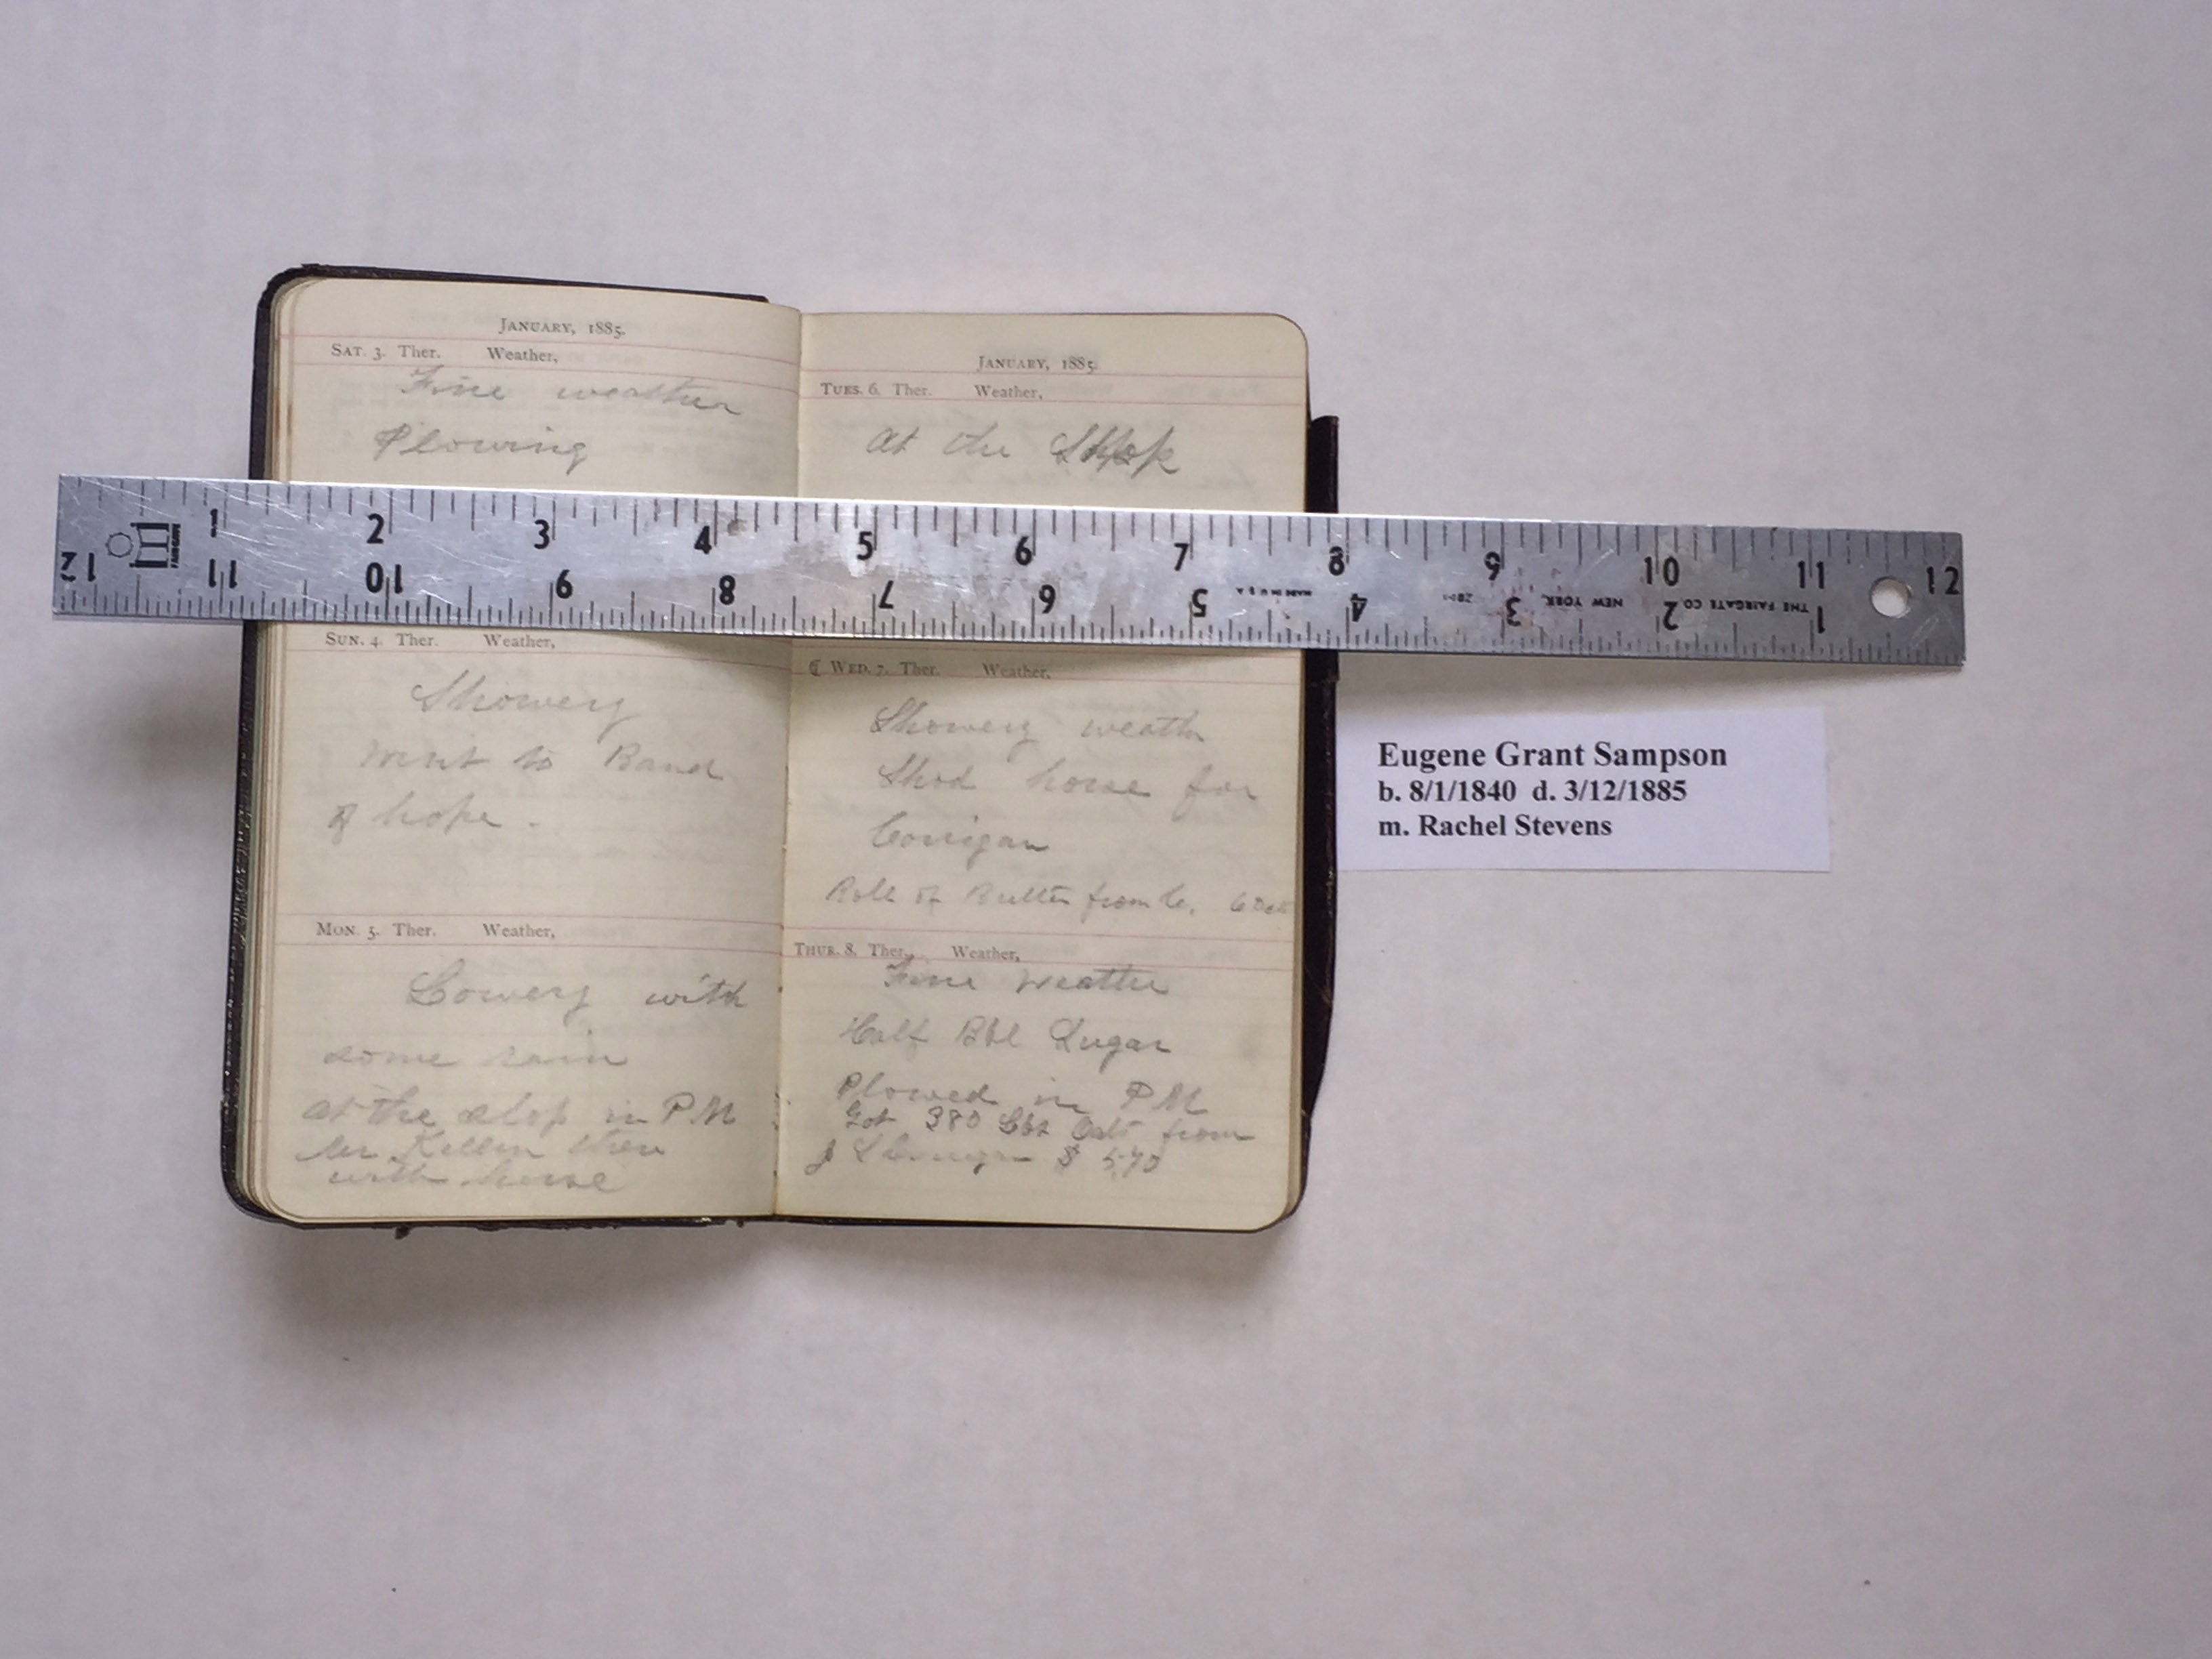 JANUARY, 1885.
SAT. 3. Ther. Weather,
Fine weather
Plowing
SUN. 4. Ther. Weather,
Showery
Went to Band
of hope.
MON. 5. Ther. Weather,
Lowery with
some rain
at the shop in PM
Mr
with horse
JANUARY, 1885.
TUES. 6. Ther. Weather,
At the Shop
WED. 7. Ther. Weather,
Showery weath
Shod horse for
Corrigan
Roll of Butter from C. 60cts
THUR. 8. Ther. Weather,
Fine Weather
Half Bbl Sugar
Plowed in PM
Got 380 Lbs Oats from
J $ 5.70
1 2 3 4 5 6 7 8 9 10 11 12
12 11 10 9 8 7 6 5 4 3 2 1
MADE IN U.S.A.
THE FAIRGATE CO. NEW YORK
Eugene Grant Sampson
b. 8/1/1840 d. 3/12/1885
m. Rachel Stevens